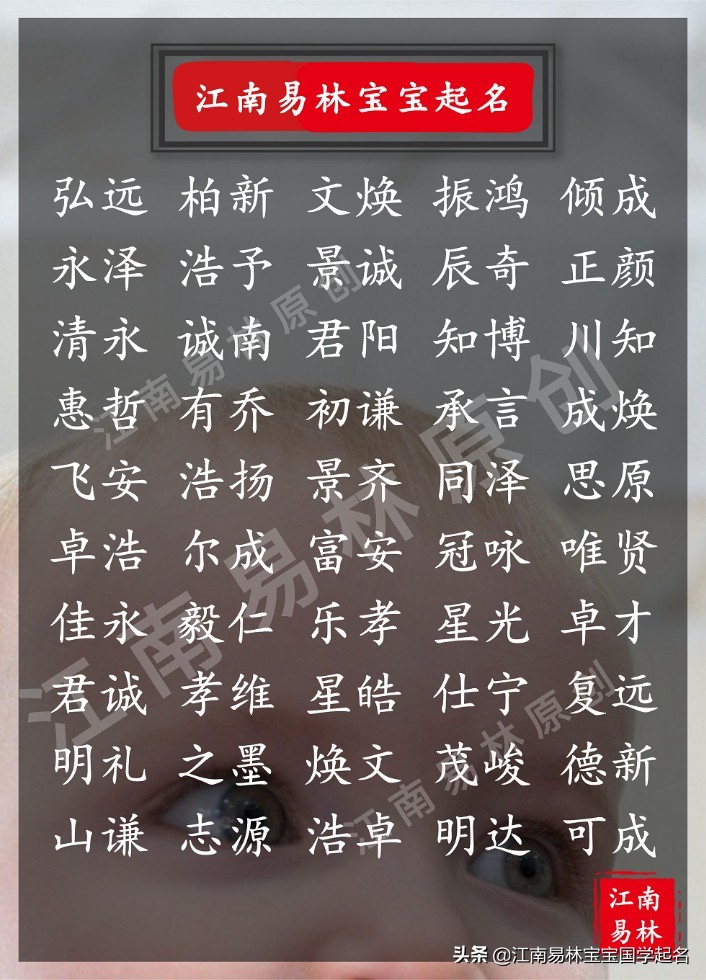 江南易林宝宝起名
弘远 柏新 文焕 振鸿 倾成
永泽 浩予 景诚 辰奇 正颜
清永 诚南 君阳 知博 川知
惠哲 有乔 初谦 承言 成焕
飞安 浩扬 景齐 同泽 思原
卓浩 尔成 富安 冠咏 唯贤
佳永 毅仁 乐孝 星光 卓才
君诚 孝维 星皓 仕宁 复远
明礼 之墨 焕文 茂峻 德新
山谦 志源 浩卓 明达 可成
江南易林原创
江南易林原创
江南易林原创
江南
易林
头条 @江南易林宝宝国学起名